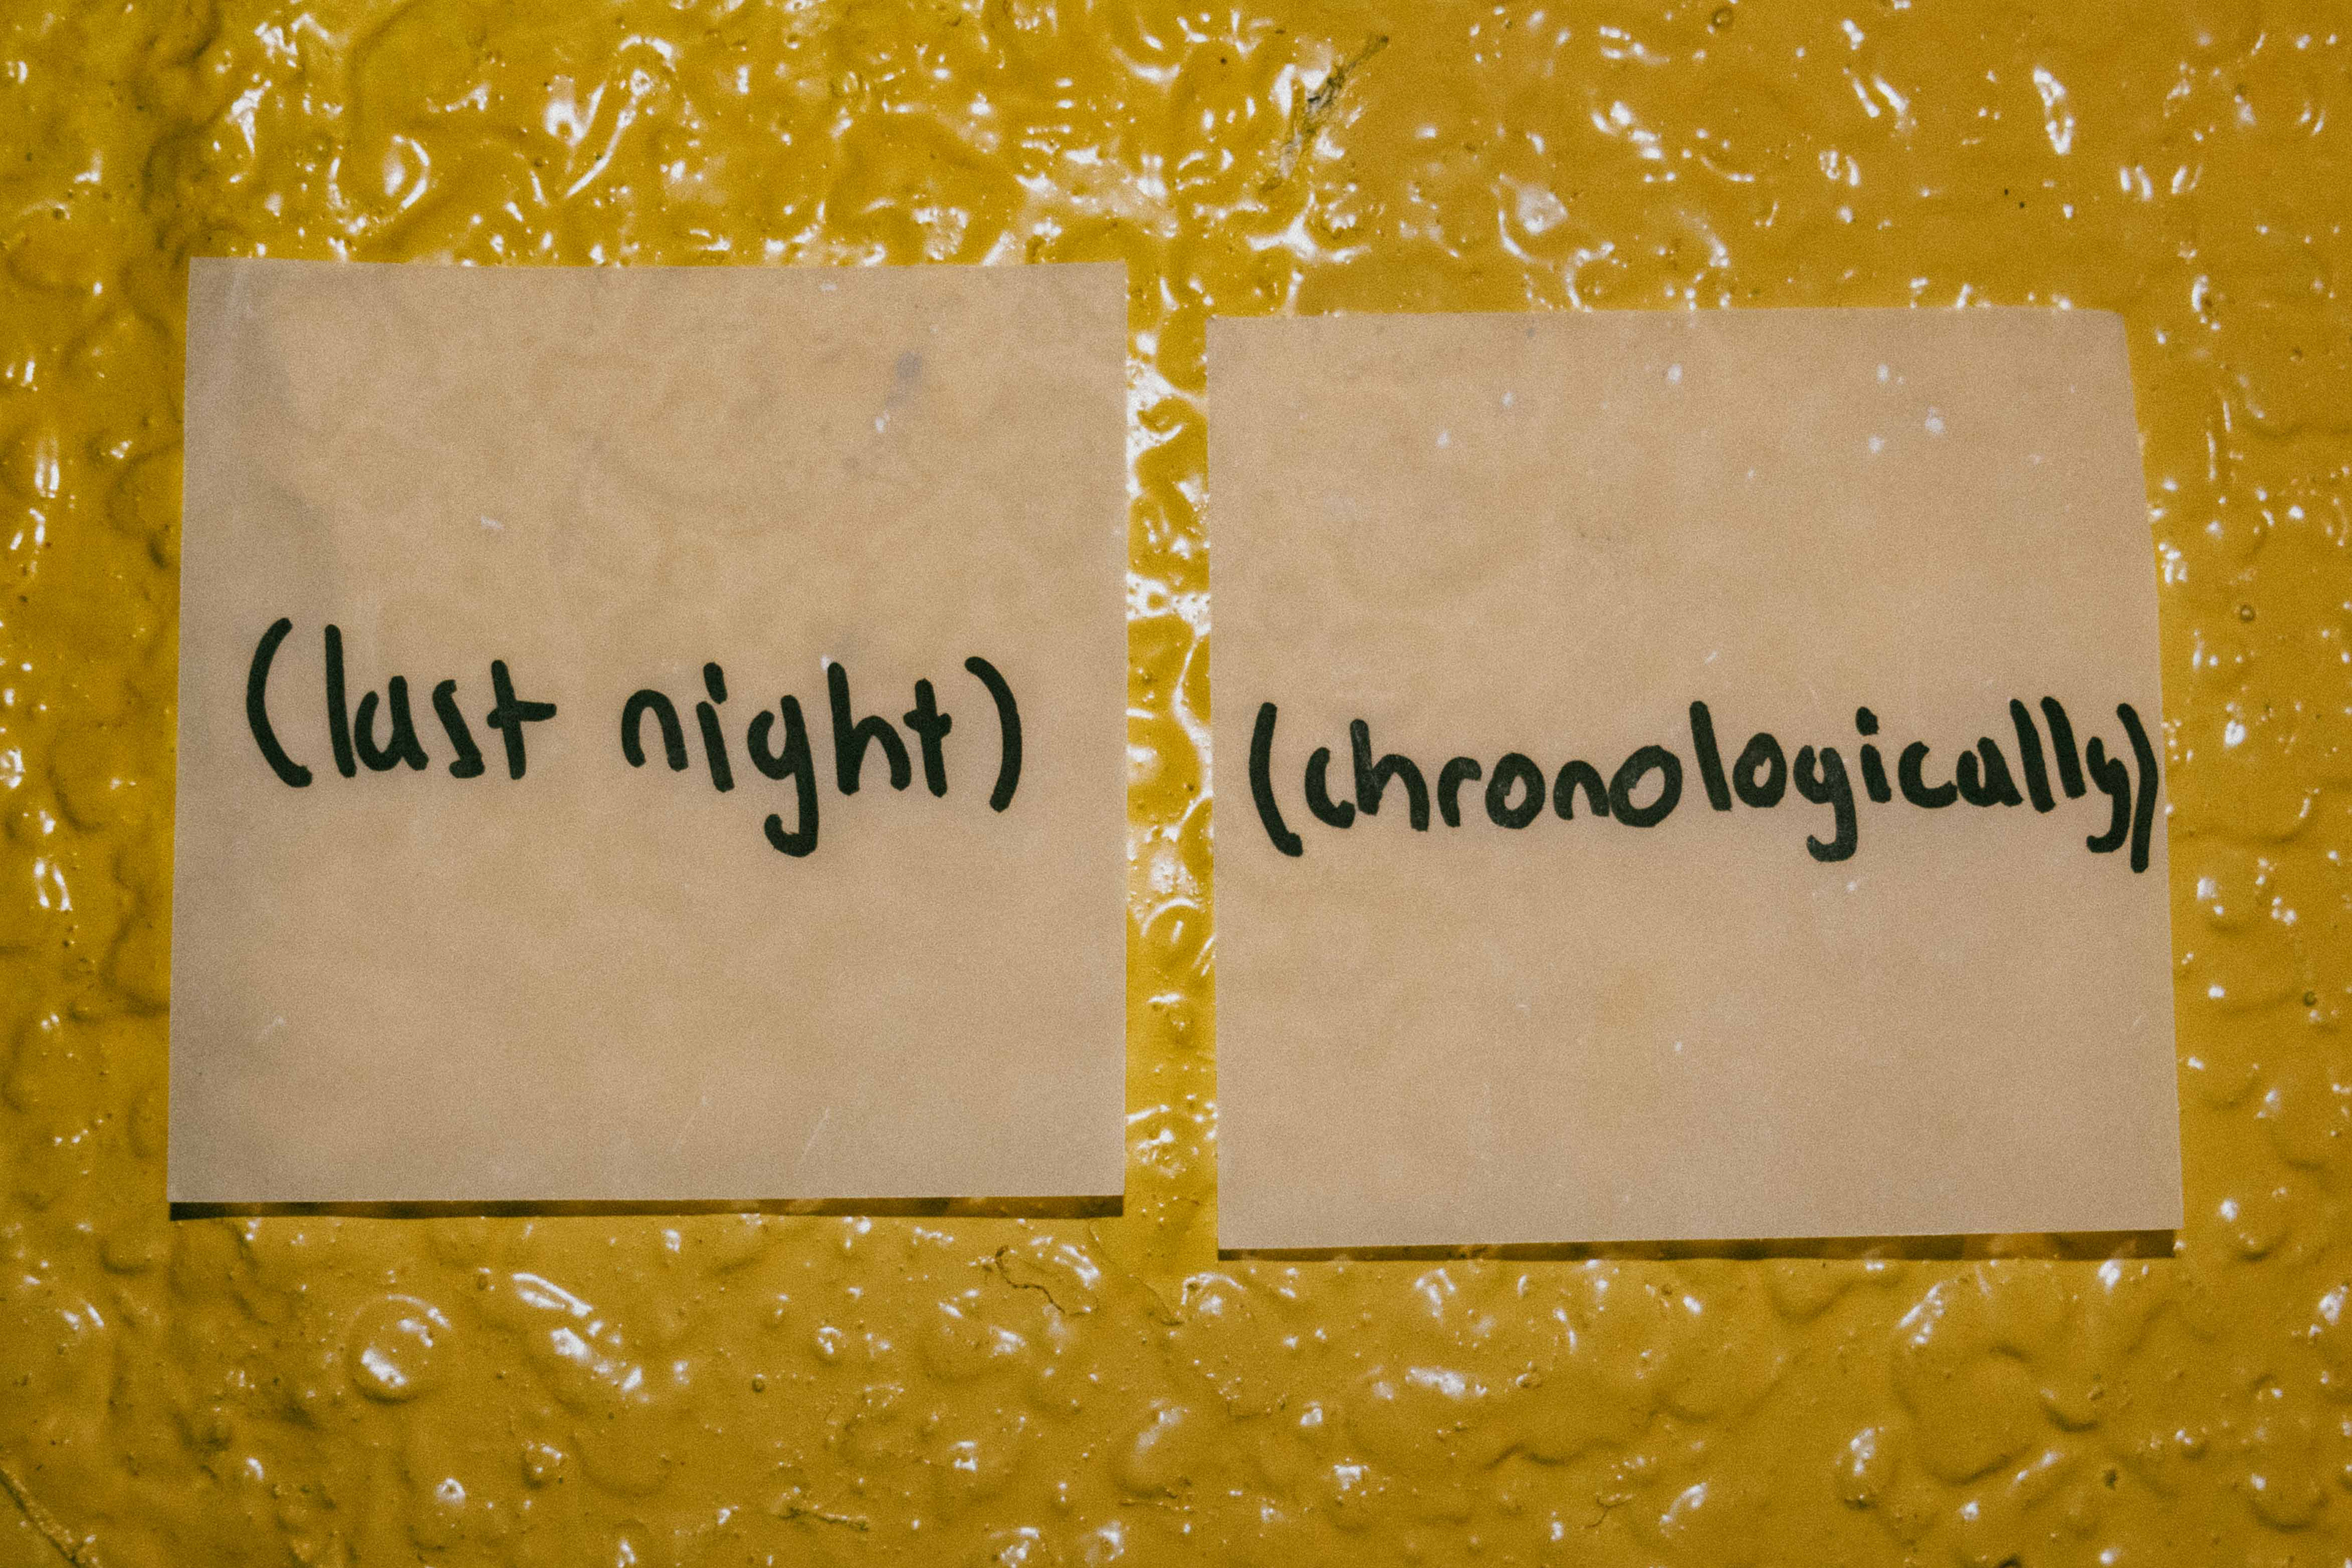 (last night)
(chronologically)